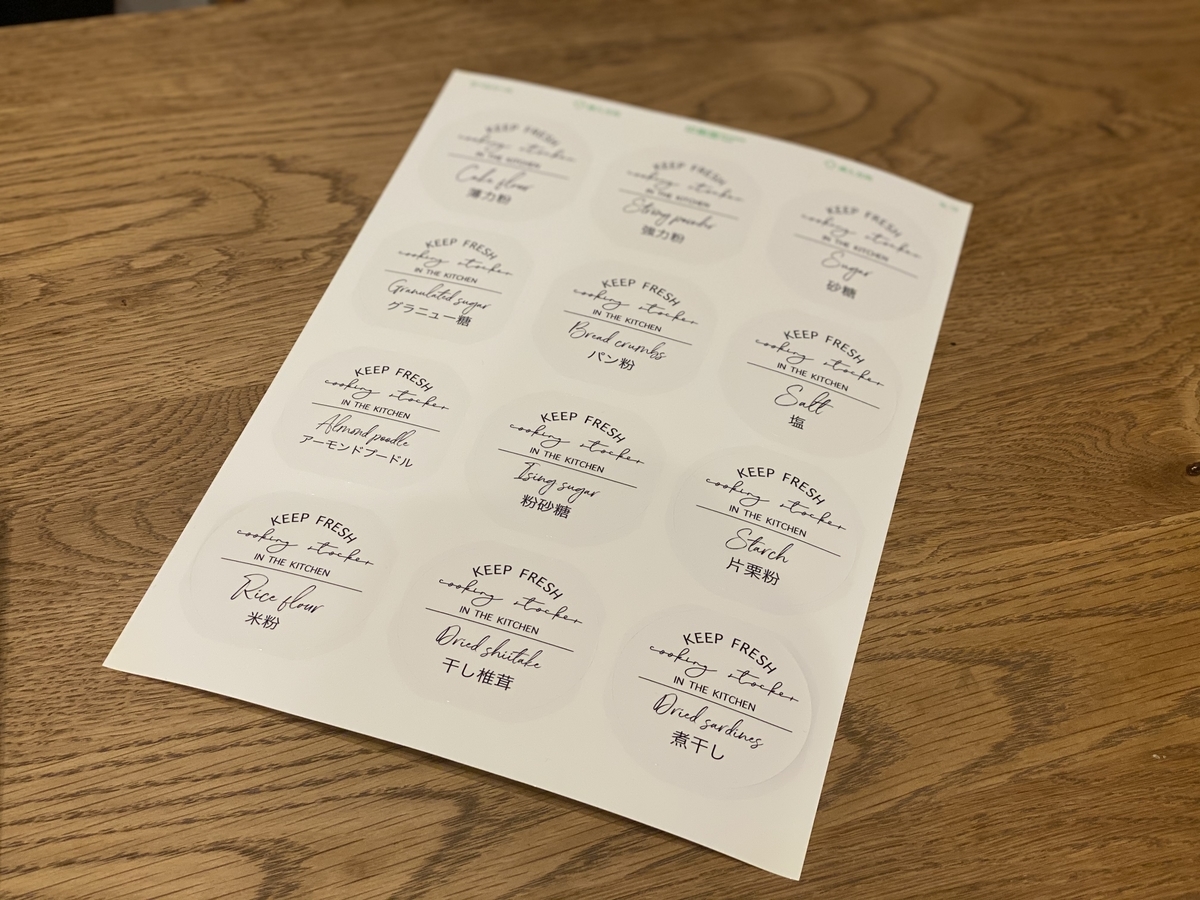 KEEP FRESH
cooking stocker
IN THE KITCHEN
Cake flour
薄力粉
KEEP FRESH
cooking stocker
IN THE KITCHEN
Strong powder
強力粉
KEEP FRESH
cooking stocker
IN THE KITCHEN
Sugar
砂糖
KEEP FRESH
cooking stocker
IN THE KITCHEN
Granulated sugar
グラニュー糖
KEEP FRESH
cooking stocker
IN THE KITCHEN
Bread crumbs
パン粉
KEEP FRESH
cooking stocker
IN THE KITCHEN
Salt
塩
KEEP FRESH
cooking stocker
IN THE KITCHEN
Almond poodle
アーモンドプードル
KEEP FRESH
cooking stocker
IN THE KITCHEN
Ising sugar
粉砂糖
KEEP FRESH
cooking stocker
IN THE KITCHEN
Starch
片栗粉
KEEP FRESH
cooking stocker
IN THE KITCHEN
Rice flour
米粉
KEEP FRESH
cooking stocker
IN THE KITCHEN
Dried shiitake
干し椎茸
KEEP FRESH
cooking stocker
IN THE KITCHEN
Dried sardines
煮干し